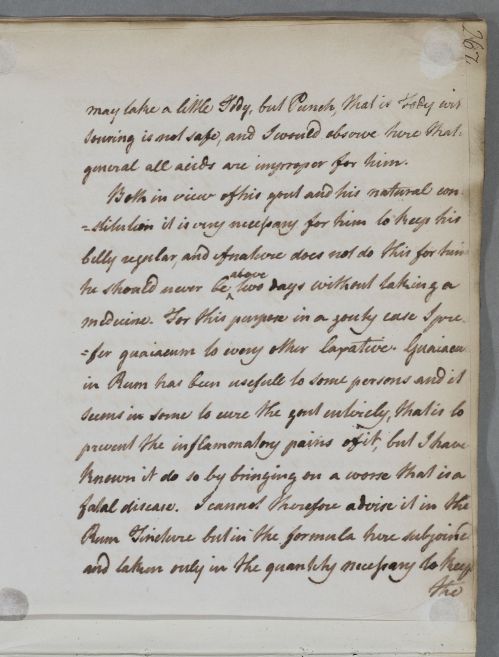 262
may take a little Tody, but Punch, that is Tody wit
souring is not safe, and I would observe here that
general all acids are improper for him.
Both in view of his gout and his natural con-
=stitution it is very necessary for him to keep his
belly regular, and if nature does not do this for him
he should never be above two days without taking a
medicine. For this purpose in a gouty case I pre-
=fer guaiacum to every other laxative. Guaiacu
in Rum has been usefull to some persons and it
seems in some to cure the gout entirely, that is to
prevent the inflammatory pains of it, but I have
known it do so by bringing on a worse that is a
fatal disease. I cannot therefore advise it in the
Rum Tincture but in the formula here subjoined
and taken only in the quantity necessary to keep
the